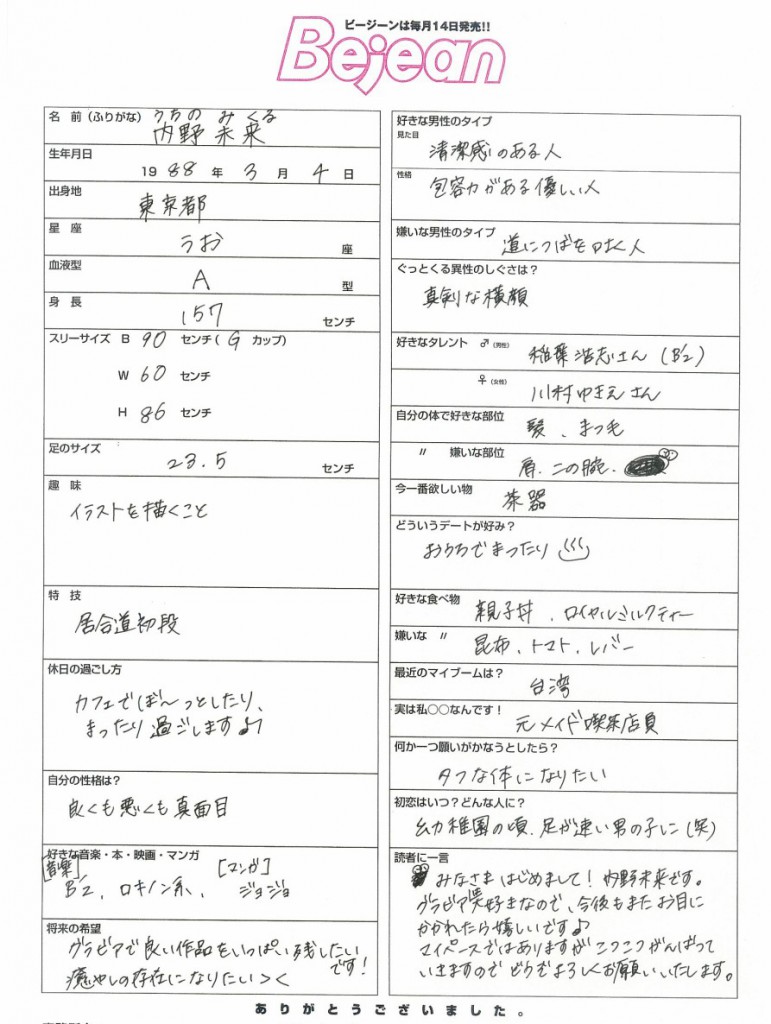 ビージーンは毎月14日発売!!
Bejean
名 前(ふりがな) うちの みくる
内野 未来
生年月日
1988年 3月 4日
出身地
東京都
星 座
うお 座
血液型
A 型
身 長
157 センチ
スリーサイズ B 90 センチ( G カップ)
W 60 センチ
H 86 センチ
足のサイズ
23.5 センチ
趣 味
イラストを描くこと
特 技
居合道初段
休日の過ごし方
カフェでぼ〜っとしたり、
まったり過ごします♪
自分の性格は?
良くも悪くも真面目
好きな音楽・本・映画・マンガ
[音楽] [マンガ]
B'z、ロキノン系、 ジョジョ
将来の希望
グラビアで良い作品をいっぱい残したい
です!
癒やしの存在になりたい><
好きな男性のタイプ
見た目
清潔感のある人
性格
包容力がある優しい人
嫌いな男性のタイプ
道につばをはく人
ぐっとくる異性のしぐさは?
真剣な横顔
好きなタレント ♂(男性)
稲葉浩志さん (B'z)
♀(女性)
川村ゆきえさん
自分の体で好きな部位
髪、まつ毛
〃 嫌いな部位
肩、二の腕、
今一番欲しい物
茶器
どういうデートが好み?
おうちでまったり
好きな食べ物
親子丼、ロイヤルミルクティー
嫌いな 〃
昆布、トマト、レバー
最近のマイブームは?
台湾
実は私○○なんです!
元メイド喫茶店員
何か一つ願いがかなうとしたら?
タフな体になりたい
初恋はいつ?どんな人に?
幼稚園の頃、足が速い男の子に(笑)
読者に一言
みなさまはじめまして!内野未来です。
グラビア大好きなので、今後もまたお目に
かかれたら嬉しいです♪
マイペースではありますがコツコツがんばって
いきますのでどうぞよろしくお願いいたします。
ありがとうございました。